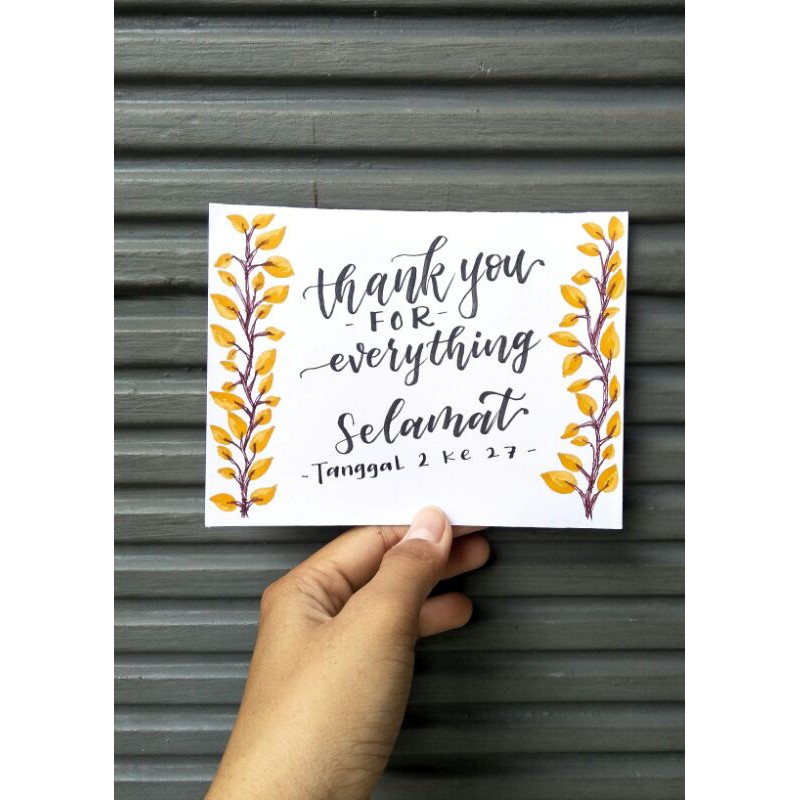 thank you
- FOR -
everything
Selamat
- Tanggal 2 Ke 27 -